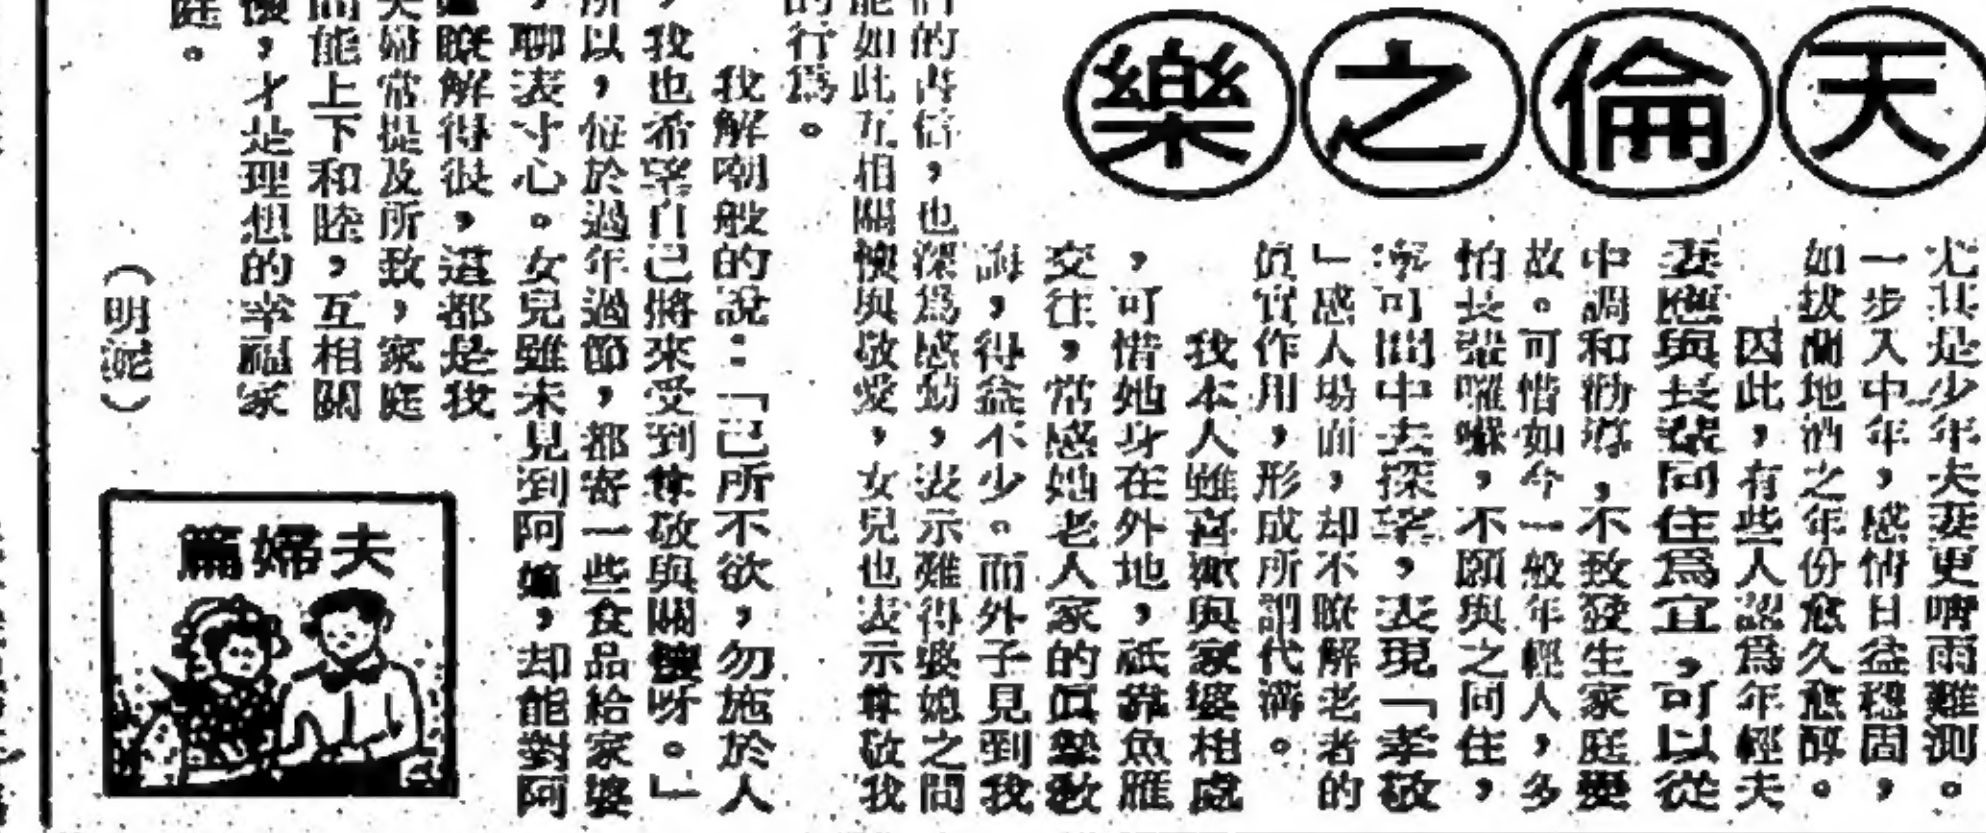 天倫之樂
尤其是少年夫妻更晴雨難測。
一步入中年，感情日益穩固，
如拔蘭地酒之年份愈久愈醇。
因此，有些人認爲年輕夫
妻應與長輩同住爲宜，可以從
中調和勸導，不致發生家庭變
故。可惜如今一般年輕人，多
怕長輩囉嗦，不願與之同住，
寧可閒中去探望，表現「孝敬
」感人場面，却不瞭解老者的
眞實作用，形成所謂代溝。
我本人雖喜歡與家婆相處
，可惜她身在外地，祇靠魚雁
交往，常感她老人家的眞摯敎
誨，得益不少。而外子見到我
們的書信，也深爲感動，表示難得婆媳之間
能如此互相關懷與敬愛，女兒也表示尊敬我
的行爲。
我解嘲般的說：「己所不欲，勿施於人
，我也希望自己將來受到尊敬與關懷呀。」
所以，每於過年過節，都寄一些食品給家婆
，聊表寸心。女兒雖未見到阿嫲，却能對阿
瞭解得很，這都是我
夫婦常提及所致，家庭
間能上下和睦，互相關
懷，才是理想的幸福家
庭。
（明妮）
夫婦篇